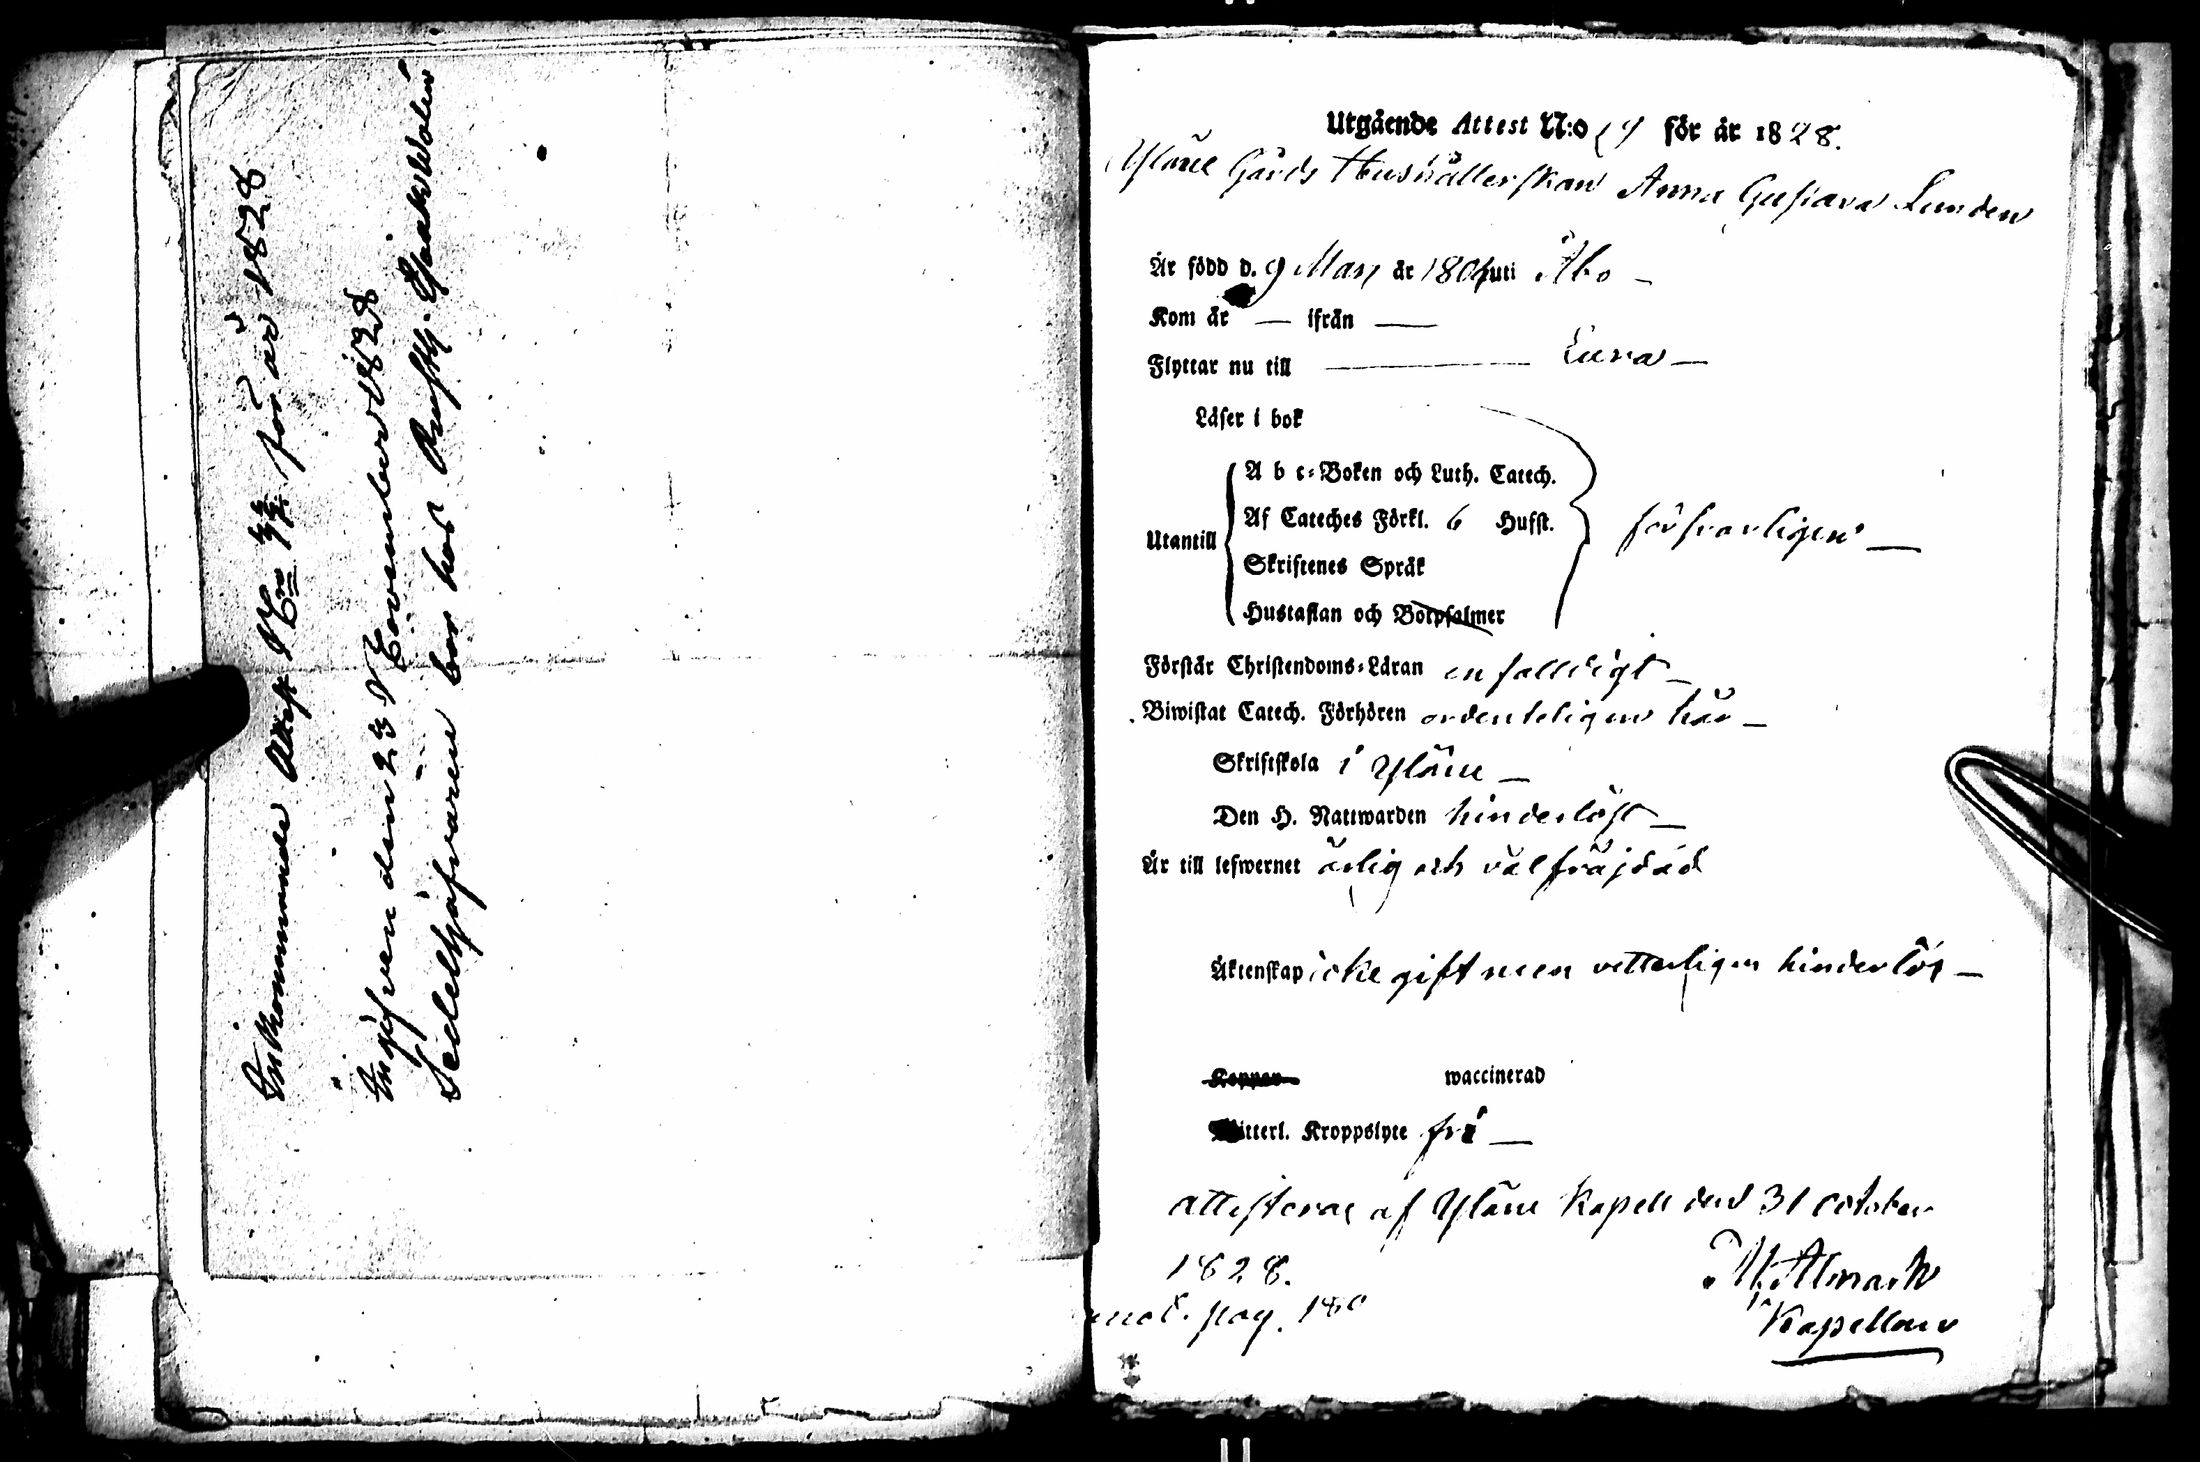 Inkommande Attest N:ro 44 för år 1828
Ingifven den 23 November 1828
Sedelhafvaren bor hos
Utgående Attest N:o 19 för år 1828.
Yläne Gårds Hushållerskan Anna Gustava Lunden
Är född d. 9 Maij år 1804 uti Åbo —
Kom år — ifrån —
Flyttar nu till — Eura —
Läser i bok
A b c-Boken och Luth. Catech.
Af Cateches Förkl. 6 Hufst.
Utantill försvarligen —
Skriftenes Språk
Hustaflan och Botpsalmer
Förstår Christendoms-Läran enfalldigt —
Biwistat Catech. Förhören ordenteligen här —
Skriftskola i Yläne —
Den H. Nattwarden hinderlöst —
Är till lefwernet ärlig och välfräjdad
Äktenskap icke gift men vetterligen hinderlös —
Koppor waccinerad
Witterl. Kroppslyte fri —
attesterar af Yläne Kapell den 31 October
1828. M. Almark
pag. 180 Kapellan